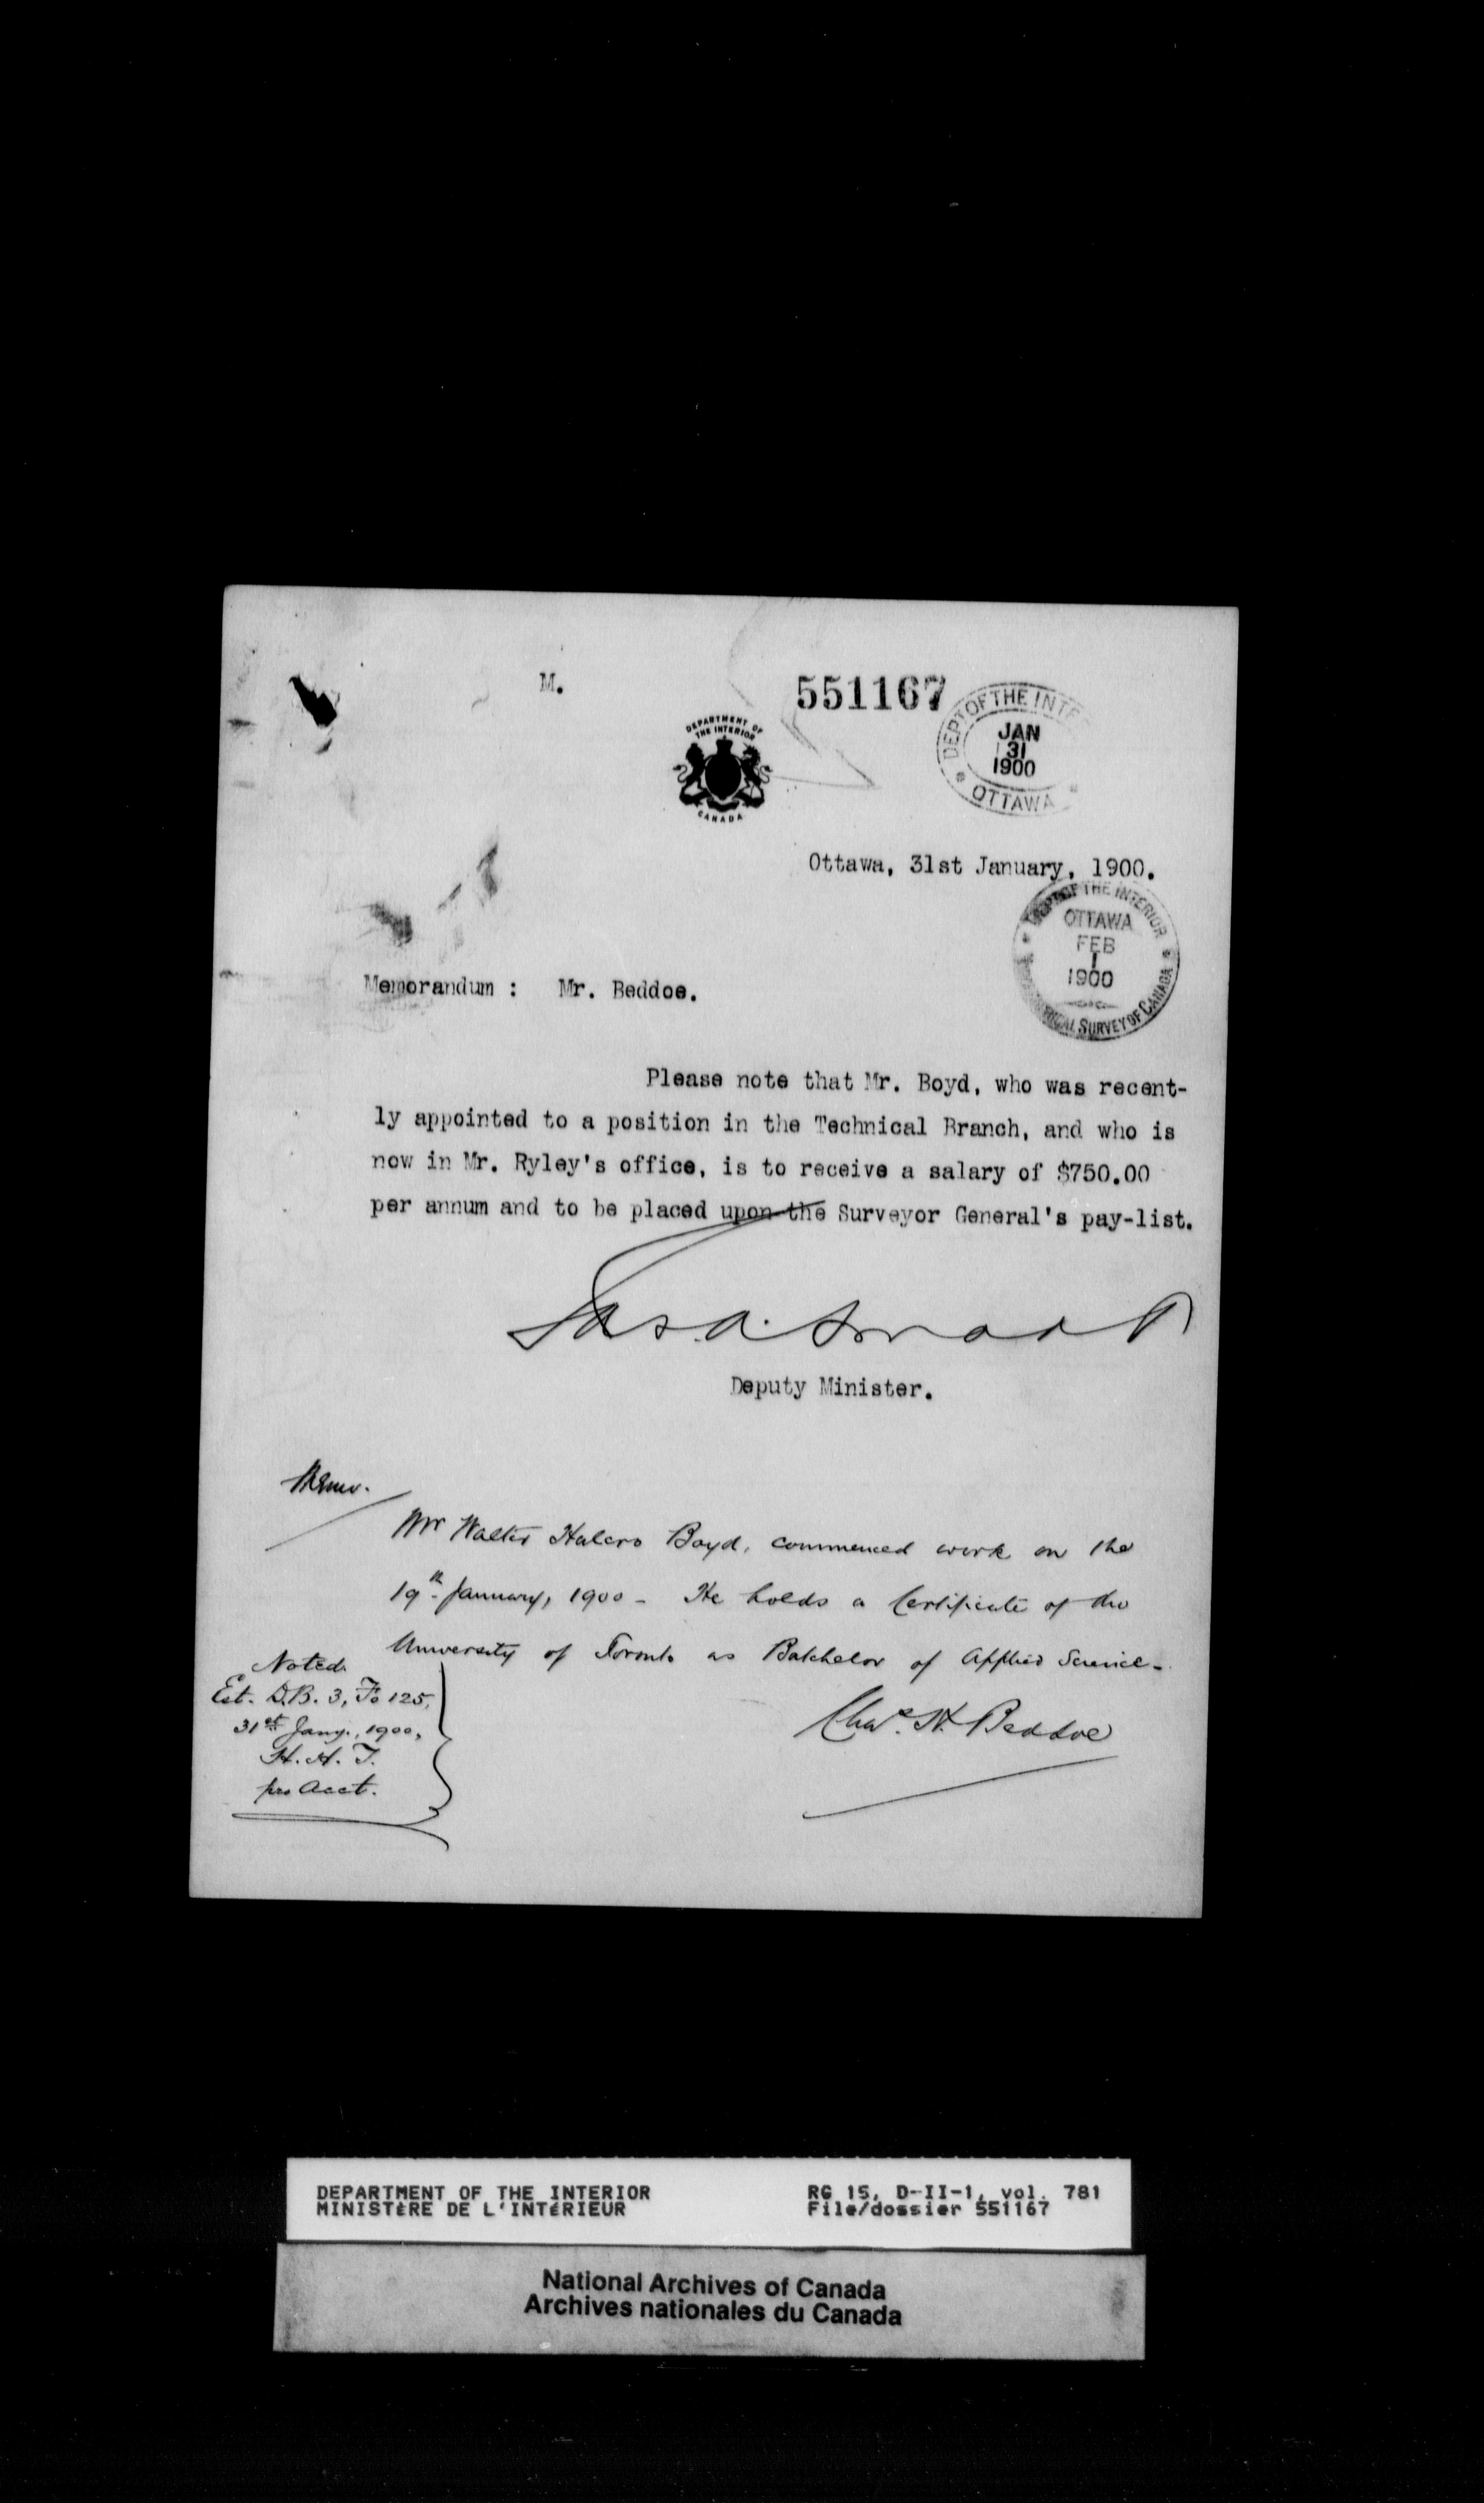 M.
551167
DEPARTMENT OF
THE INTERIOR
CANADA
DEPT OF THE INTE
JAN
31
1900
OTTAWA
Ottawa, 31st January, 1900.
DEPT OF THE INTERIOR
OTTAWA
FEB
1
1900
SURVEY OF CANADA
Memorandum : Mr. Beddoe.
Please note that Mr. Boyd, who was recent-
ly appointed to a position in the Technical Branch, and who is
now in Mr. Ryley's office, is to receive a salary of $750.00
per annum and to be placed upon the Surveyor General's pay-list.
Jas. A. Smart
Deputy Minister.
Memo.
Mr Walter Halcro Boyd, commenced work on the
19th January, 1900 - He holds a Certificate of the
University of Toronto as Batchelor of Applied Science -
Chas. H. Beddoe
Noted.
Est. D.B. 3, Fo 125,
31st Jany., 1900,
H. A. T.
pro Acct.
DEPARTMENT OF THE INTERIOR
MINISTÈRE DE L'INTÉRIEUR
RG 15, D-II-1, vol. 781
File/dossier 551167
National Archives of Canada
Archives nationales du Canada